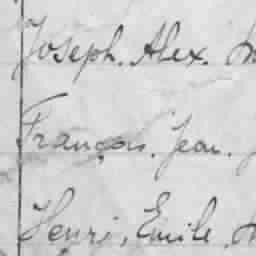 Joseph. Alex.
François. Jean.
Henri, Emile.